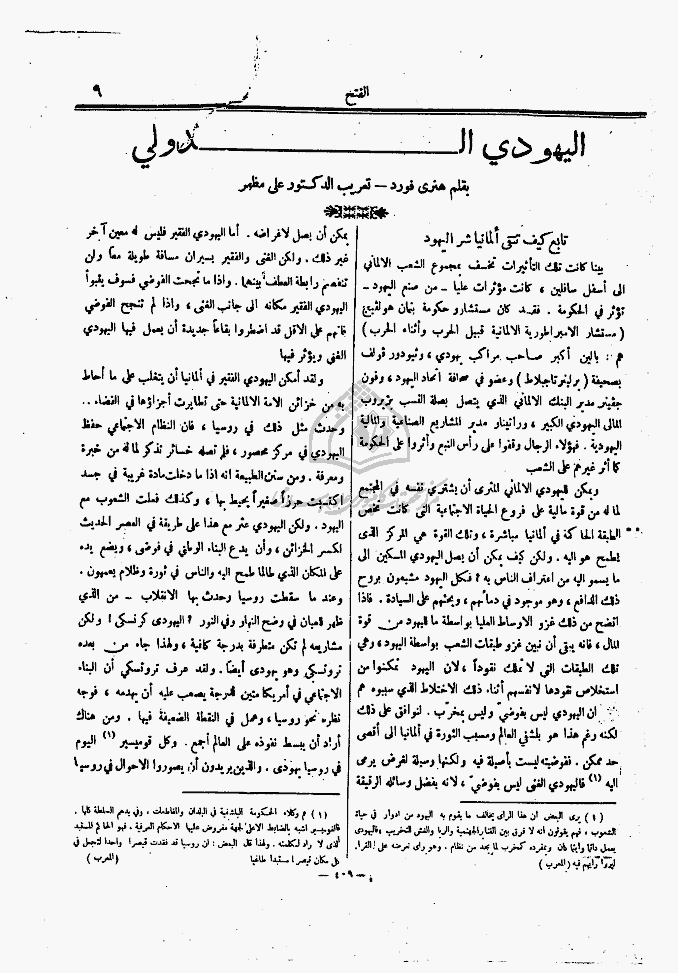 ٩
الفتح
اليهودي الدولي
بقلم هنرى فورد – تعريب الدكتور على مظهر
تابع كيف تتقى ألمانيا شر اليهود
بينا كانت تلك التأثيرات تخسف بمجموع الشعب الالماني
الى أسفل سافلين ، كانت مؤثرات عليا – من صنع اليهود –
تؤثر في الحكومة . فقد كان مستشارو حكومة بتمان هولفيتج
( مستشار الامبراطورية الالمانية قبيل الحرب وأثناء الحرب )
هم : بالين أكبر صاحب مراكب يهودي ، وثيودور ڤولف
بصحيفة ( برلينر تاجبلاط ) وعضو في صحافة اتحاد اليهود ، وفون
جفينر مدير البنك الالماني الذي يتصل بصلة النسب ببزيرويب
المالى اليهودي الكبير ، وراتينار مدير المشاريع الصناعية والمالية
اليهودية . فهؤلاء الرجال وقفوا على رأس النبع وأثروا على الحكومة
كما أثر غيرهم على الشعب
ويمكن لليهودي الالماني المثرى أن يشترى نفسه في المجتمع
لما له من قوة مالية على فروع الحياة الاجتماعية التى كانت تخص
الطبقة الحاكمة في ألمانيا مباشرة ، وتلك القوة هي المركز الذى
يطمح هو اليه . ولكن كيف يمكن أن يصل اليهودي المسكين الى
ما يسمو اليه من اعتراف الناس به ؟ فكل اليهود مشبعون بروح
ذلك الدافع ، وهو موجود في دمائهم ، ويحثهم على السيادة . فاذا
اتضح من ذلك غزو الاوساط العليا بواسطة ما لليهود من قوة
المال ، فانه يبقى أن نبين غزو طبقات الشعب بواسطة اليهود ، وهي
تلك الطبقات التى لا تملك نقوداً ، لان اليهود تمكنوا من
استخلاص نقودها لانفسهم أثناء ذلك الاختلاط الذي سببوه هم
ان اليهودي ليس بفوضي وليس بمخرب . لنوافق على ذلك
لكنه رغم هذا هو بلشفي العالم ومسبب الثورة في ألمانيا الى أقصى
حد ممكن . ففوضيته ليست بأصيلة فيه ولكنها وسيلة لغرض يرمى
اليه (١) فاليهودي الغنى ليس بفوضي ، لانه بفضل وسائله الرقيقة
(١) يرى البعض ان هذا الرأى يخالف ما يقوم به اليهود من ادوار في حياة
الشعوب ، فهم يقولون انه لا فرق بين القنابر الجهنمية والربا والغش للتخريب ، فاليهودي
يعمل دائما وأينما كان وبمفرده كمخرب لما يجد من نظام . وهو راى نعرضه على القراء
ليروا رأيهم فيه (المعرب)
يمكن أن يصل لاغراضه . أما اليهودي الفقير فليس له معين آخر
غير ذلك . ولكن الغنى والفقير يسيران مسافة طويلة معاً ولن
تنفصم رابطة العطف بينهما . واذا ما نجحت الفوضي فسوف يتبوأ
اليهودي الفقير مكانه الى جانب الغنى ، واذا لم تنجح الفوضي
فانهم على الاقل قد اضطروا بقاعاً جديدة أن يعمل فيها اليهودي
الغنى ويؤثر فيها
ولقد أمكن اليهودي الفقير في ألمانيا أن يتغلب على ما أحاط
به من خزائن الامة الالمانية حتى تطايرت أجزاؤها في الفضاء . .
وحدث مثل ذلك في روسيا ، فان النظام الاجتماعي حفظ
اليهودي في مركز محصور ، فلم تصله خسائر تذكر لما له من خبرة
ومعرفة . ومن سنن الطبيعة انه اذا ما دخلت مادة غريبة في جسد
اكتسبت حرزاً صغيراً يحيط بها ، وكذلك فعلت الشعوب مع
اليهود . ولكن اليهودي عثر مع هذا على طريقة في العصر الحديث
لكسر الخزائن ، وأن يدع البناء الوطني في فوضى ، ويضع يده
على المكان الذي طالما طمح اليه والناس في ثورة وظلام يعمهون .
وعند ما سقطت روسيا وحدث بها الانقلاب – من الذي
ظهر للعيان في وضح النهار وفي النور ؟ اليهودى كرنسكى ! ولكن
مشاريعه لم تكن متطرفة بدرجة كافية ، ولهذا جاء من بعده
تروتسكى وهو يهودى أيضاً . ولقد عرف تروتسكي أن البناء
الاجتماعي في أمريكا متين لدرجة يصعب عليه أن يهدمه ، فوجه
نظره نحو روسيا ، وعمل في النقطة الضعيفة فيها . ومن هناك
أراد أن يبسط نفوذه على العالم أجمع . وكل قوميسير (١) اليوم
في روسيا يهودى . والذين يريدون أن يصوروا الاحوال في روسيا
(١) هم وكلاء الحكومة البلشفية في البلدان والمقاطعات ، وفي يدهم السلطة كلها .
فالقوميسير اشبه بالضابط الاعلى لجهة مفروض عليها الاحكام العرفية . فهو الحاكم المستبد
الذى لا راد لكلمته . ولهذا قال البعض : ان روسيا قد فقدت قيصرا واحدا لتجعل في
كل مكان قيصرا مستبدا طاغيا (المعرب)
– ٤٠٩ –